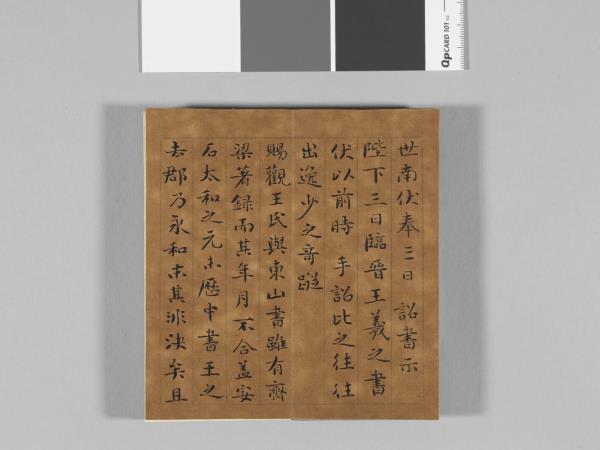 世南伏奉三日 詔書示
陛下三日臨晉王羲之書
伏以前時 手詔比之往往
出逸少之奇蹤
賜觀王氏與東山書雖有齊
梁著錄而其年月不合蓋安
石太和之元未歷中書王之
去郡乃永和末其非決矣且
QpCARD 101 v2